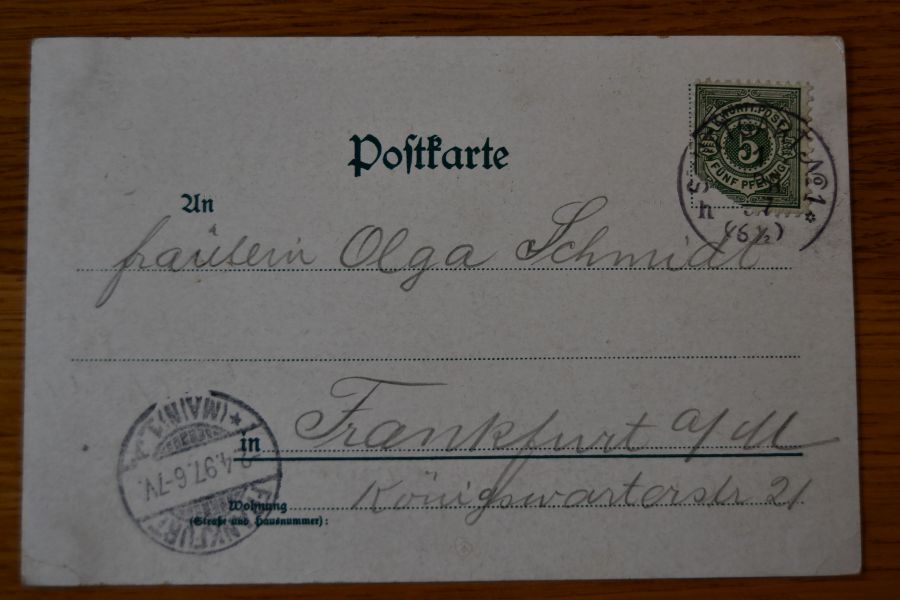 Postkarte
K. WÜRTT. POST
5
FÜNF PFENNIG
No 1 *
An
fräulein Olga Schmidt
in Frankfurt a/M
Wohnung Königswarterstr 21
(Straße und Hausnummer):
FRANKFURT (MAIN) 1
.4.97.6-7V.